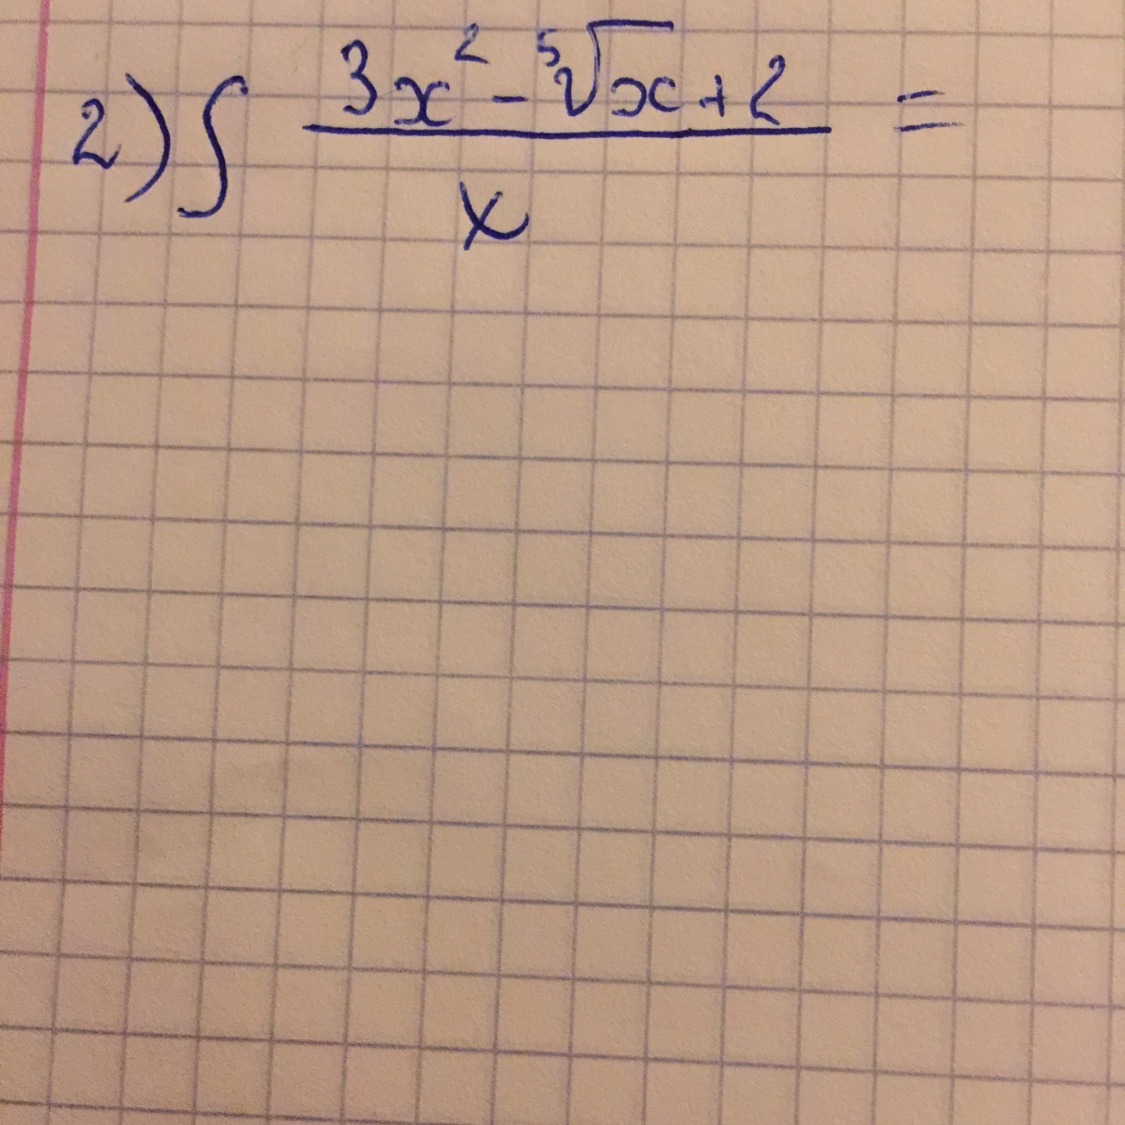 2) ∫ (3x² - ⁵√x + 2) / x =